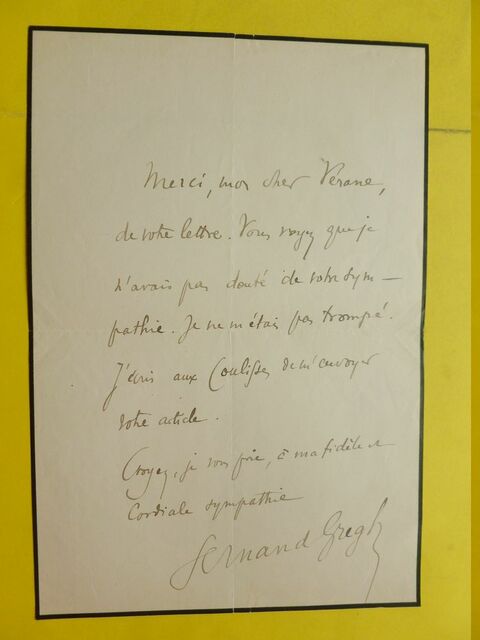 Merci, mon cher Vérane,
de votre lettre. Vous voyez que je
n'avais pas douté de votre sym–
pathie. Je ne m'étais pas trompé.
J'écris aux Coulisses de m'envoyer
votre article.
Croyez, je vous prie, à ma fidèle et
Cordiale sympathie
Fernand Gregh